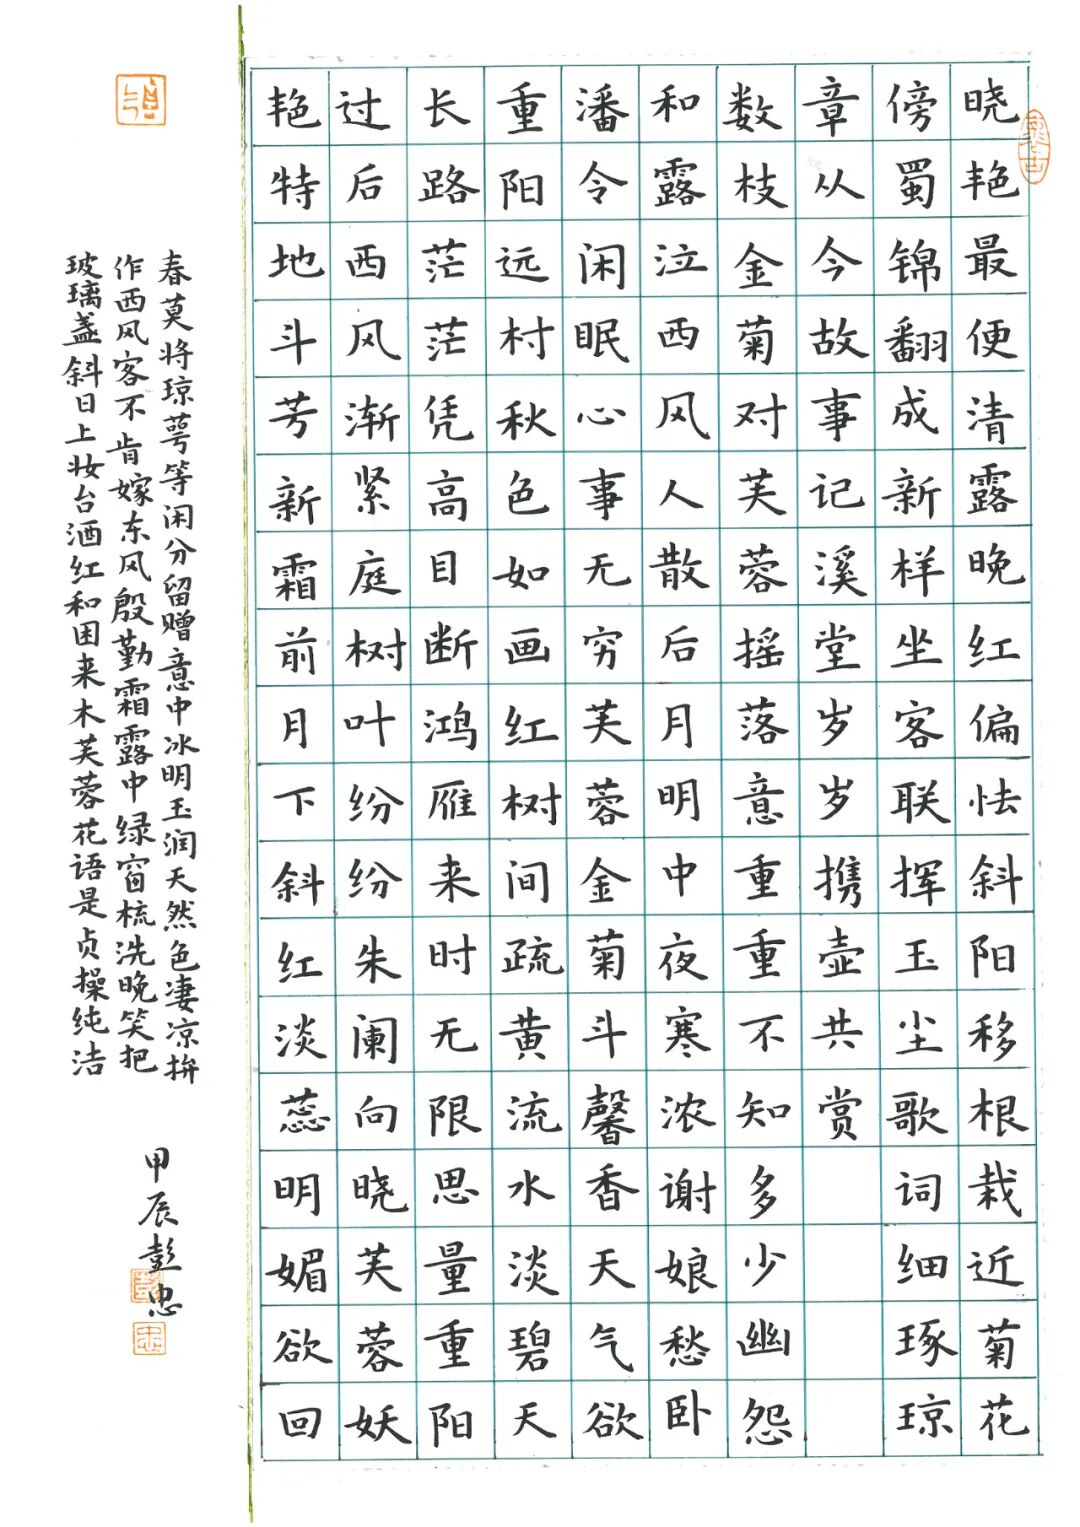 晓艳最便清露晚红偏怯斜阳移根栽近菊花
傍蜀锦翻成新样坐客联挥玉尘歌词细琢琼
章从今故事记溪堂岁岁携壶共赏
数枝金菊对芙蓉摇落意重重不知多少幽怨
和露泣西风人散后月明中夜寒浓谢娘愁卧
潘令闲眠心事无穷芙蓉金菊斗馨香天气欲
重阳远村秋色如画红树间疏黄流水淡碧天
长路茫茫凭高目断鸿雁来时无限思量重阳
过后西风渐紧庭树叶纷纷朱阑向晓芙蓉妖
艳特地斗芳新霜前月下斜红淡蕊明媚欲回
春莫将琼萼等闲分留赠意中冰明玉润天然色凄凉拚
作西风客不肯嫁东风殷勤霜露中绿窗梳洗晚笑把
玻璃盏斜日上妆台酒红和困来木芙蓉花语是贞操纯洁
甲辰彭忠